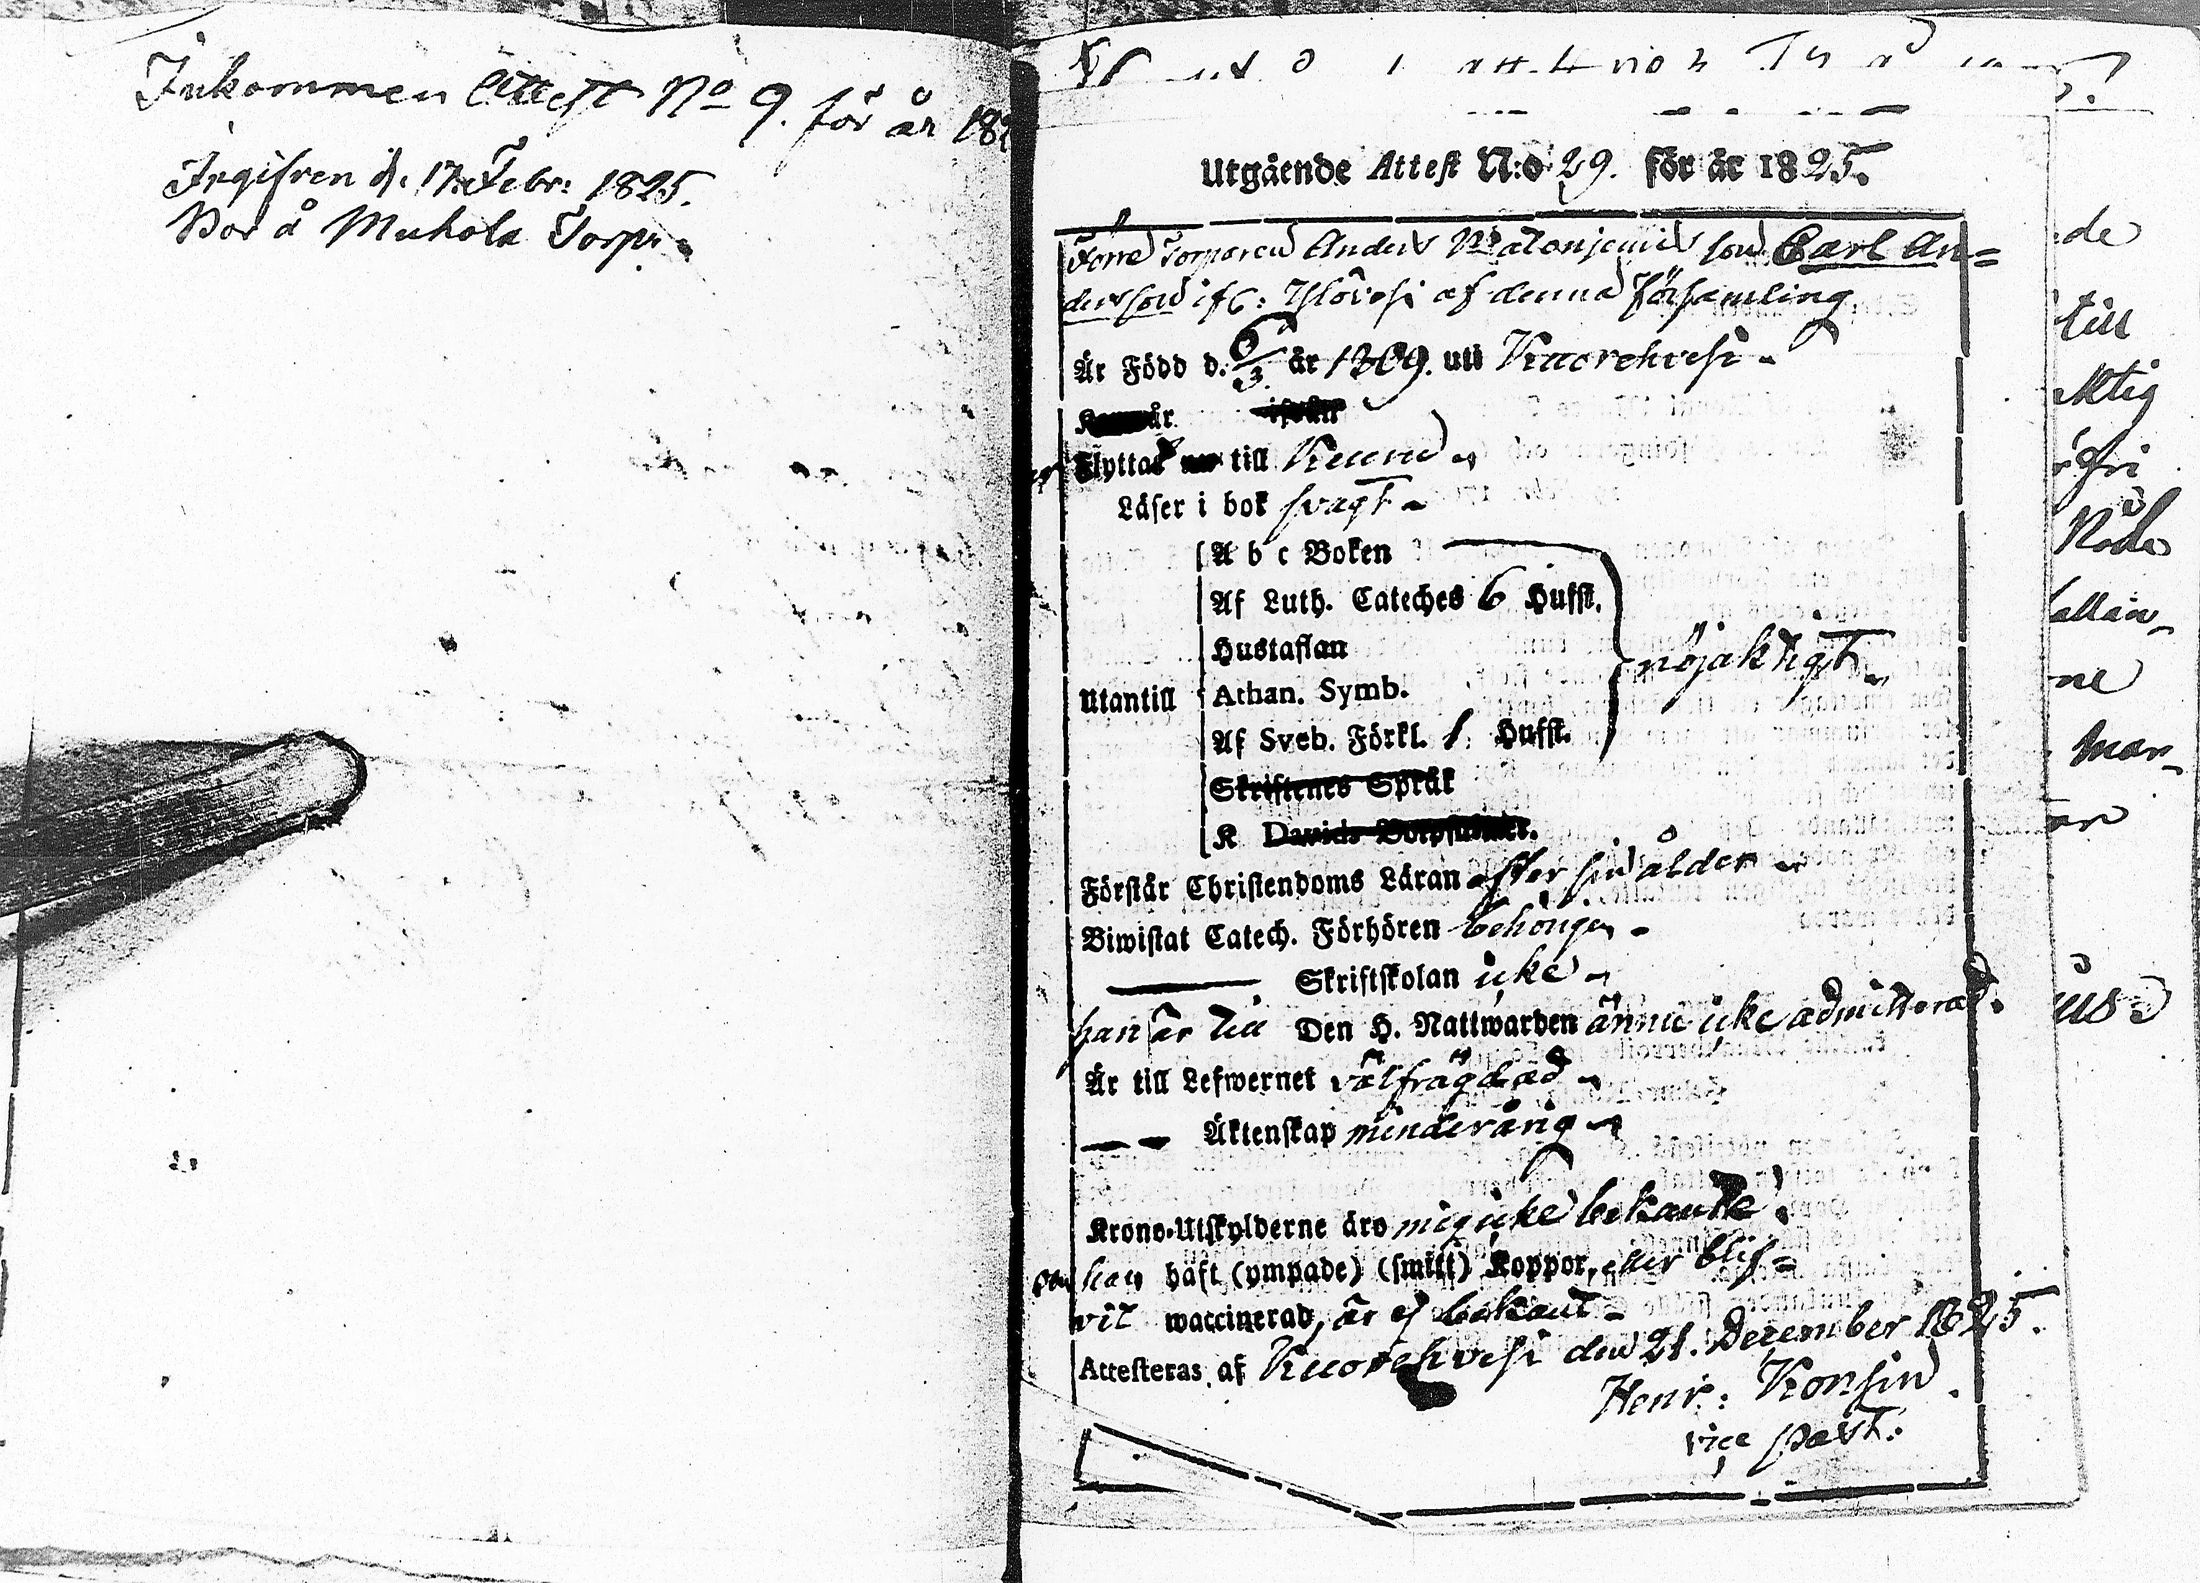 Inkommen Attest No 9. för år 18
Ingifven d. 17. Febr: 1825.
Bor å Muhola Torp.
Utgående Attest N:o 29. för år 1825.
Förre Torparen Anders son Carl An=
dersson ifr: Ylövesi af denna Församling
Är Född d. 6/3 år 1809. uti Kuorehvesi
år
Flyttar till Keuru
Läser i bok svagt
A b c Boken
Af Luth. Cateches 6 Hufst.
Hustaflan
nöjaktigt
Utantill
Athan. Symb.
Af Sveb. Förkl. 1 Hufst.
Skriftenes Språk
K Davids Botpsalmer.
Förstår Christendoms Läran efter sin ålder
Biwistat Catech. Förhören behörigen
Skriftskolan icke
han är till Den H. Nattwarden ännu icke admitterad.
Är till Lefwernet välfrägdad
Äktenskap minderårig
Krono-Utskylderne äro mig icke bekante.
Om han häft (ympade) (smitt) Koppor, eller blif=
vit waccinerad, är ej bekant
Attesteras af Kuorehvesi den 21. December 1825.
Henr: Konsin
vice past.
de
till
ktig
fri
ne
man